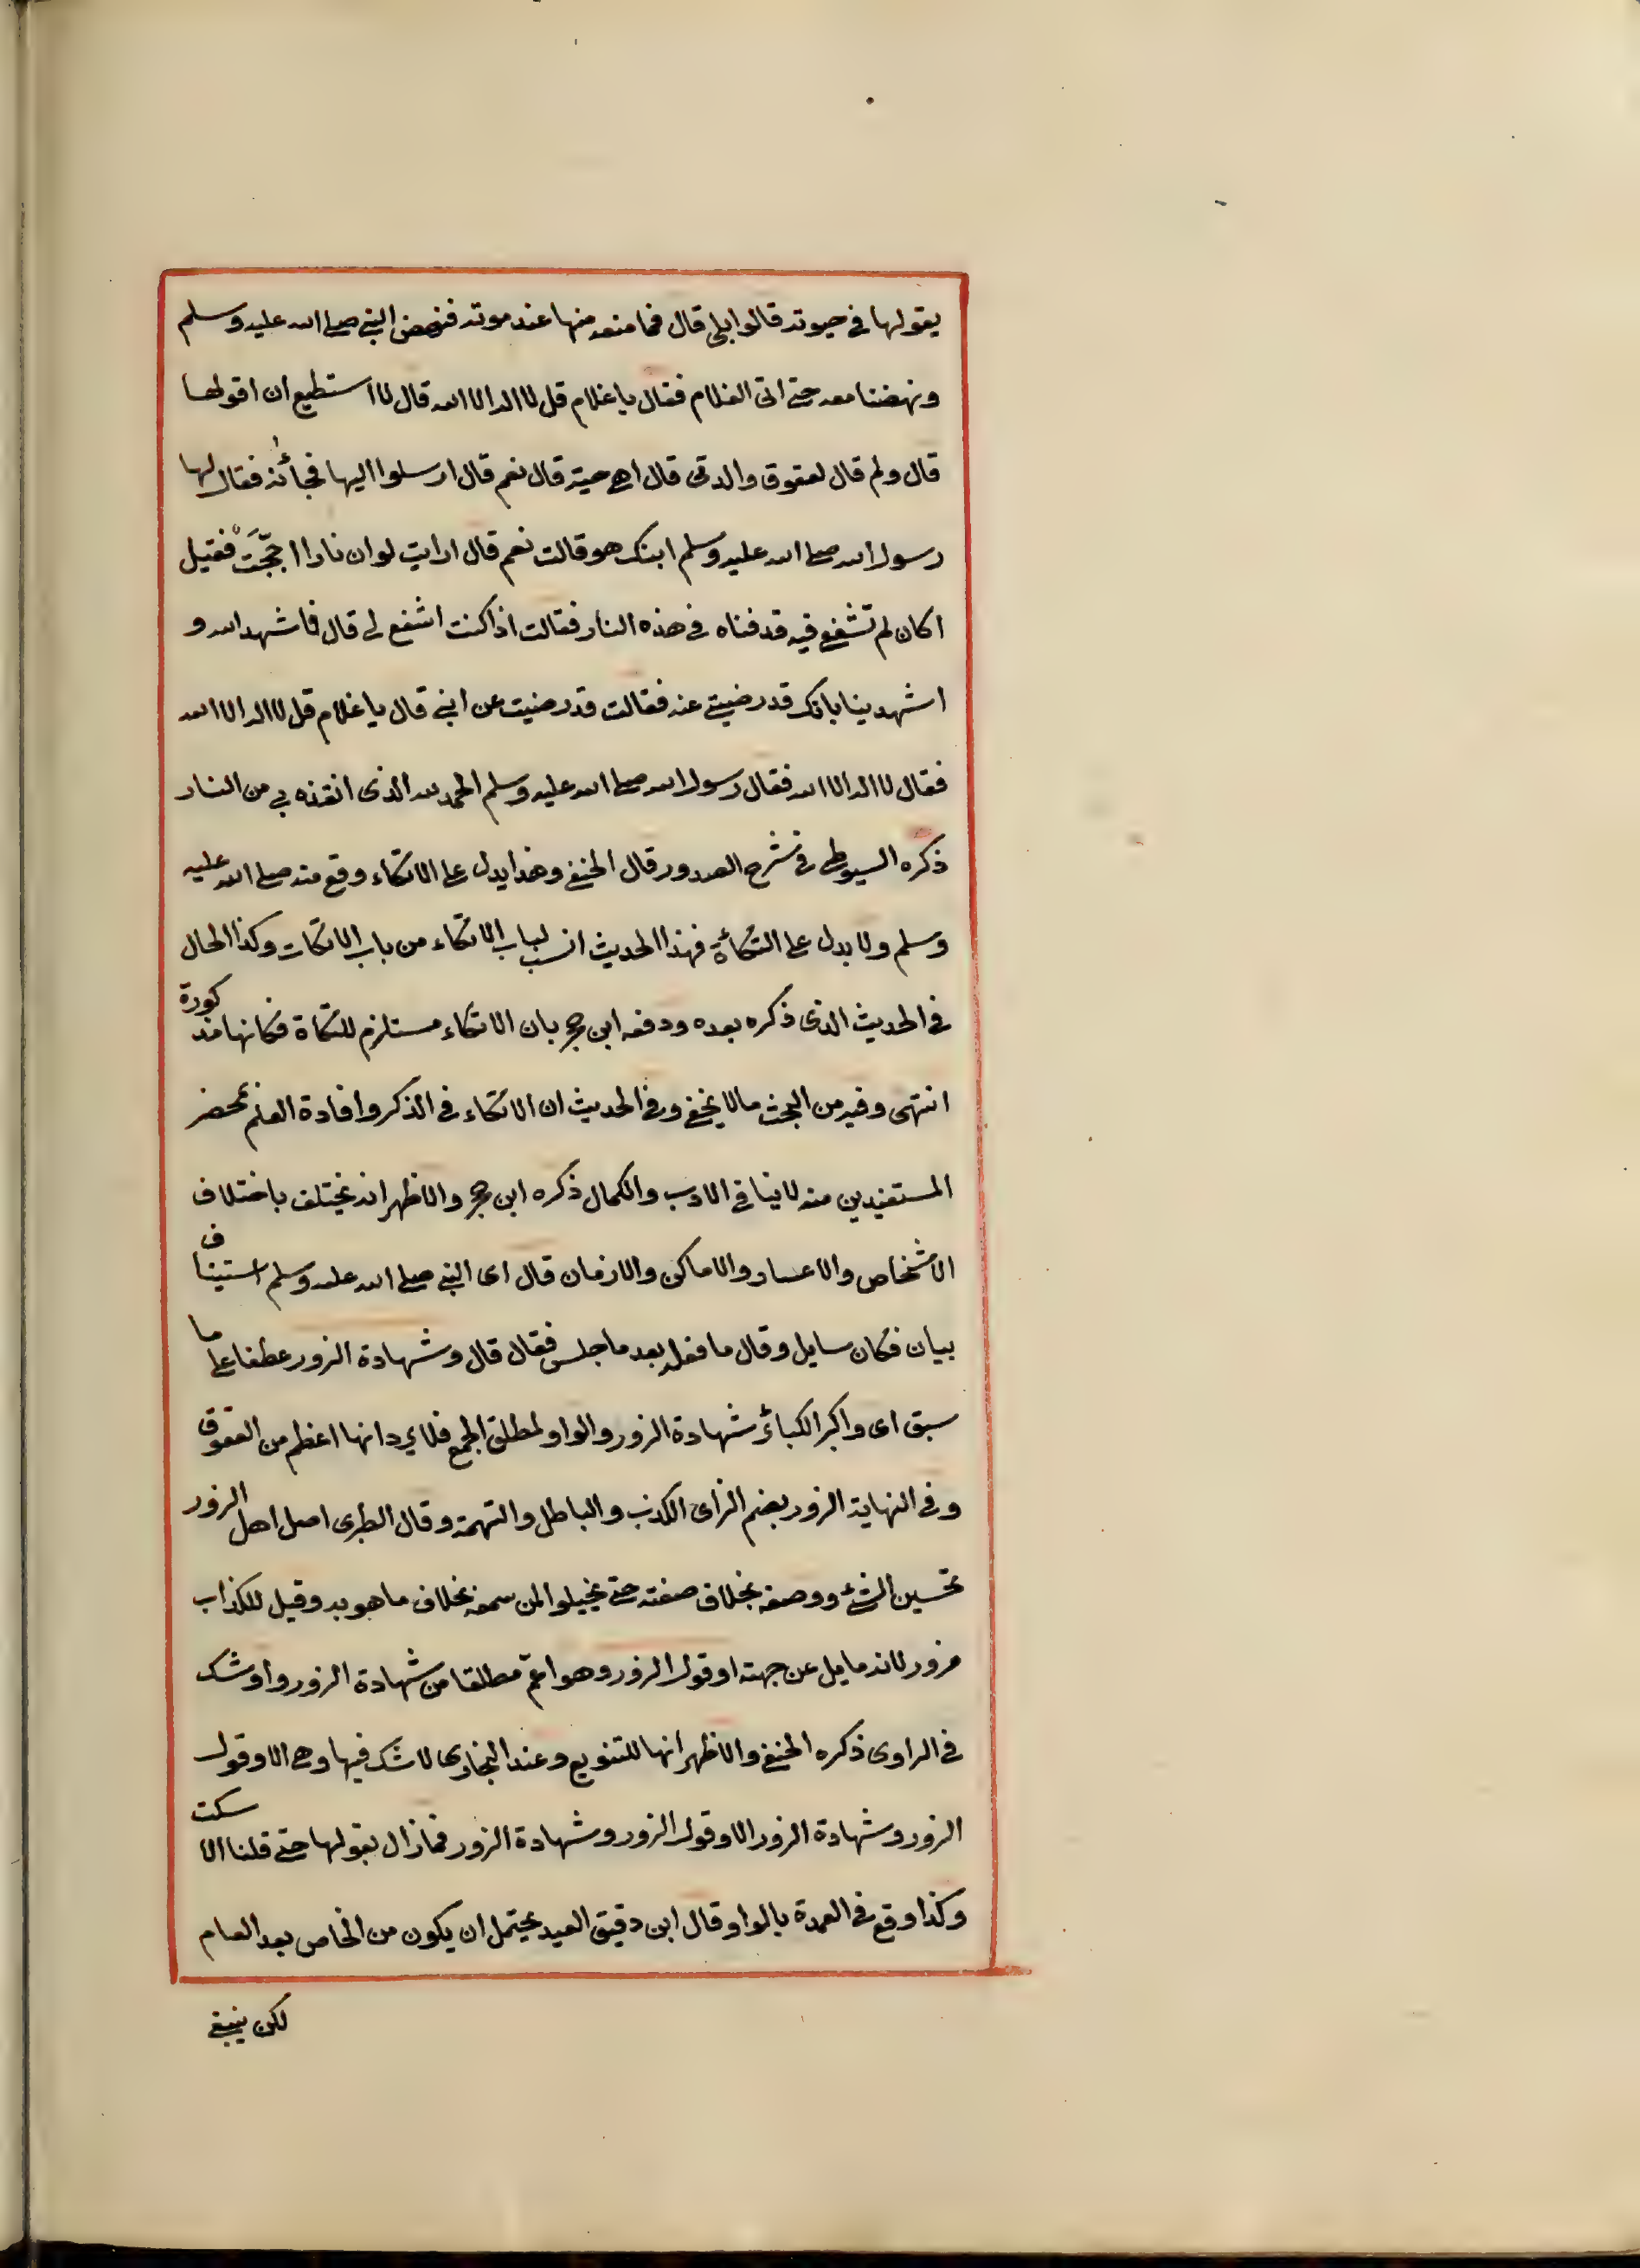 يقولها في حيوته قالوا بلى قال فما منعه منها عند موته فنهض النبي صلى الله عليه وسلم
ونهضنا معه حتى اتى الغلام فقال يا غلام قل لا اله الا الله قال لا استطيع ان اقولها
قال ولم قال لعقوق والدتى قال اهى حية قال نعم قال ارسلوا اليها فجائته فقال لها
رسول الله صلى الله عليه وسلم ابنك هو قالت نعم قال ارايت لو ان نارا اججت فقيل
اكان لم تشفعي فيه قدفناه في هذه النار فقالت اذا كنت اشفع لى قال فاشهد الله و
اشهدينا بانك قد رضيتي عنه فقالت قد رضيت عن ابني قال يا غلام قل لا اله الا الله
فقال لا اله الا الله فقال رسول الله صلى الله عليه وسلم الحمد لله الذى انقذه بي من النار
ذكره السيوطي في شرح الصدور قال الحنفي وهذا يدل على الاتكاء وقع منه صلى الله عليه
وسلم ولا يدل على التكأة فهذا الحديث انسب لباب الاتكاء من باب الاتكات وكذا الحال
في الحديث الذى ذكره بعده ودفعه ابن حجر بان الاتكاء مستلزم للتكاة فكانها مذكورة
انتهى وفيه من البحث مالا يخفى وفي الحديث ان الاتكاء في الذكر وافادة العلم بمحضر
المستفيدين منه لا ينافي الادب والكمال ذكره ابن حجر والاظهر انه يختلف باختلاف
الاشخاص والاعصار والاماكن والازمان قال اى النبي صلى الله عليه وسلم استيناف
بيان فكان سايل وقال ما فعله بعد ما جلس فقال قال وشهادة الزور عطفا على ما
سبق اى واكبر الكبائر شهادة الزور والواو لمطلق الجمع فلا يرد انها اعظم من العقوق
وفي النهاية الزور بضم الزاى الكذب والباطل والتهمة وقال الطبرى اصل اهل الزور
تحسين الشئ ووصفه بخلاف صفته حتى يخيلوا لمن سمعه بخلاف ما هو به وقيل للكذاب
مزور لانه مايل عن جهته او قول الزور وهو اعمّ مطلقا من شهادة الزور واو شك
في الراوى ذكره الحنفي والاظهر انها للتنويع وعند البخارى لا شك فيها وهى الا وقول
الزور وشهادة الزور الا وقول الزور وشهادة الزور فما زال يقولها حتى قلنا الا سكت
وكذا وقع في العمدة بالواو وقال ابن دقيق العيد يحتمل ان يكون من الخاص بعد العام
لكن ينبغي